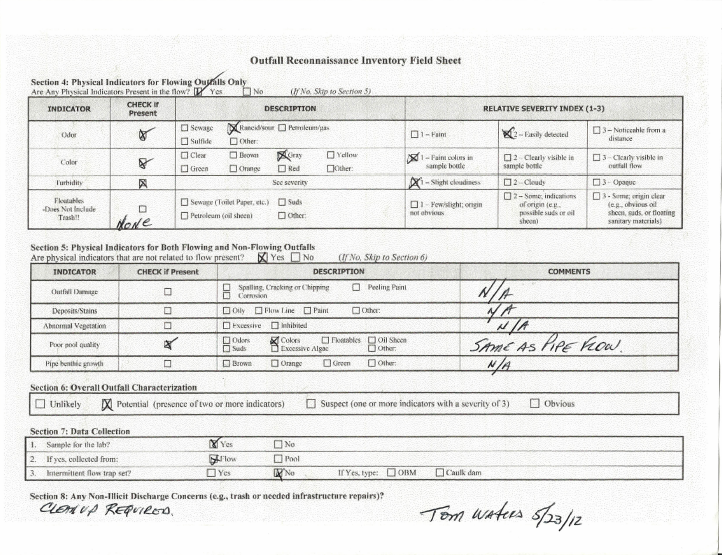 Outfall Reconnaissance Inventory Field Sheet
Section 4: Physical Indicators for Flowing Outfalls Only
Are Any Physical Indicators Present in the flow? ☒ Yes ☐ No (If No, Skip to Section 5)
INDICATOR CHECK if Present DESCRIPTION RELATIVE SEVERITY INDEX (1-3)
Odor ☒ ☐ Sewage ☒ Rancid/sour ☐ Petroleum/gas
☐ Sulfide ☐ Other:
☐ 1 – Faint ☒ 2 – Easily detected ☐ 3 – Noticeable from a distance
Color ☒ ☐ Clear ☐ Brown ☒ Gray ☐ Yellow
☐ Green ☐ Orange ☐ Red ☐ Other:
☒ 1 – Faint colors in sample bottle ☐ 2 – Clearly visible in sample bottle ☐ 3 – Clearly visible in outfall flow
Turbidity ☒ See severity ☒ 1 – Slight cloudiness ☐ 2 – Cloudy ☐ 3 – Opaque
Floatables -Does Not Include Trash!! ☐ NONE
☐ Sewage (Toilet Paper, etc.) ☐ Suds
☐ Petroleum (oil sheen) ☐ Other:
☐ 1 – Few/slight; origin not obvious ☐ 2 – Some; indications of origin (e.g., possible suds or oil sheen) ☐ 3 - Some; origin clear (e.g., obvious oil sheen, suds, or floating sanitary materials)
Section 5: Physical Indicators for Both Flowing and Non-Flowing Outfalls
Are physical indicators that are not related to flow present? ☒ Yes ☐ No (If No, Skip to Section 6)
INDICATOR CHECK if Present DESCRIPTION COMMENTS
Outfall Damage ☐ ☐ Spalling, Cracking or Chipping ☐ Peeling Paint
☐ Corrosion
N/A
Deposits/Stains ☐ ☐ Oily ☐ Flow Line ☐ Paint ☐ Other: N/A
Abnormal Vegetation ☐ ☐ Excessive ☐ Inhibited N/A
Poor pool quality ☒ ☐ Odors ☒ Colors ☐ Floatables ☐ Oil Sheen
☐ Suds ☐ Excessive Algae ☐ Other:
SAME AS PIPE FLOW.
Pipe benthic growth ☐ ☐ Brown ☐ Orange ☐ Green ☐ Other: N/A
Section 6: Overall Outfall Characterization
☐ Unlikely ☒ Potential (presence of two or more indicators) ☐ Suspect (one or more indicators with a severity of 3) ☐ Obvious
Section 7: Data Collection
1. Sample for the lab? ☒ Yes ☐ No
2. If yes, collected from: ☒ Flow ☐ Pool
3. Intermittent flow trap set? ☐ Yes ☒ No If Yes, type: ☐ OBM ☐ Caulk dam
Section 8: Any Non-Illicit Discharge Concerns (e.g., trash or needed infrastructure repairs)?
CLEAN UP REQUIRED.
Tom Waters 5/23/12